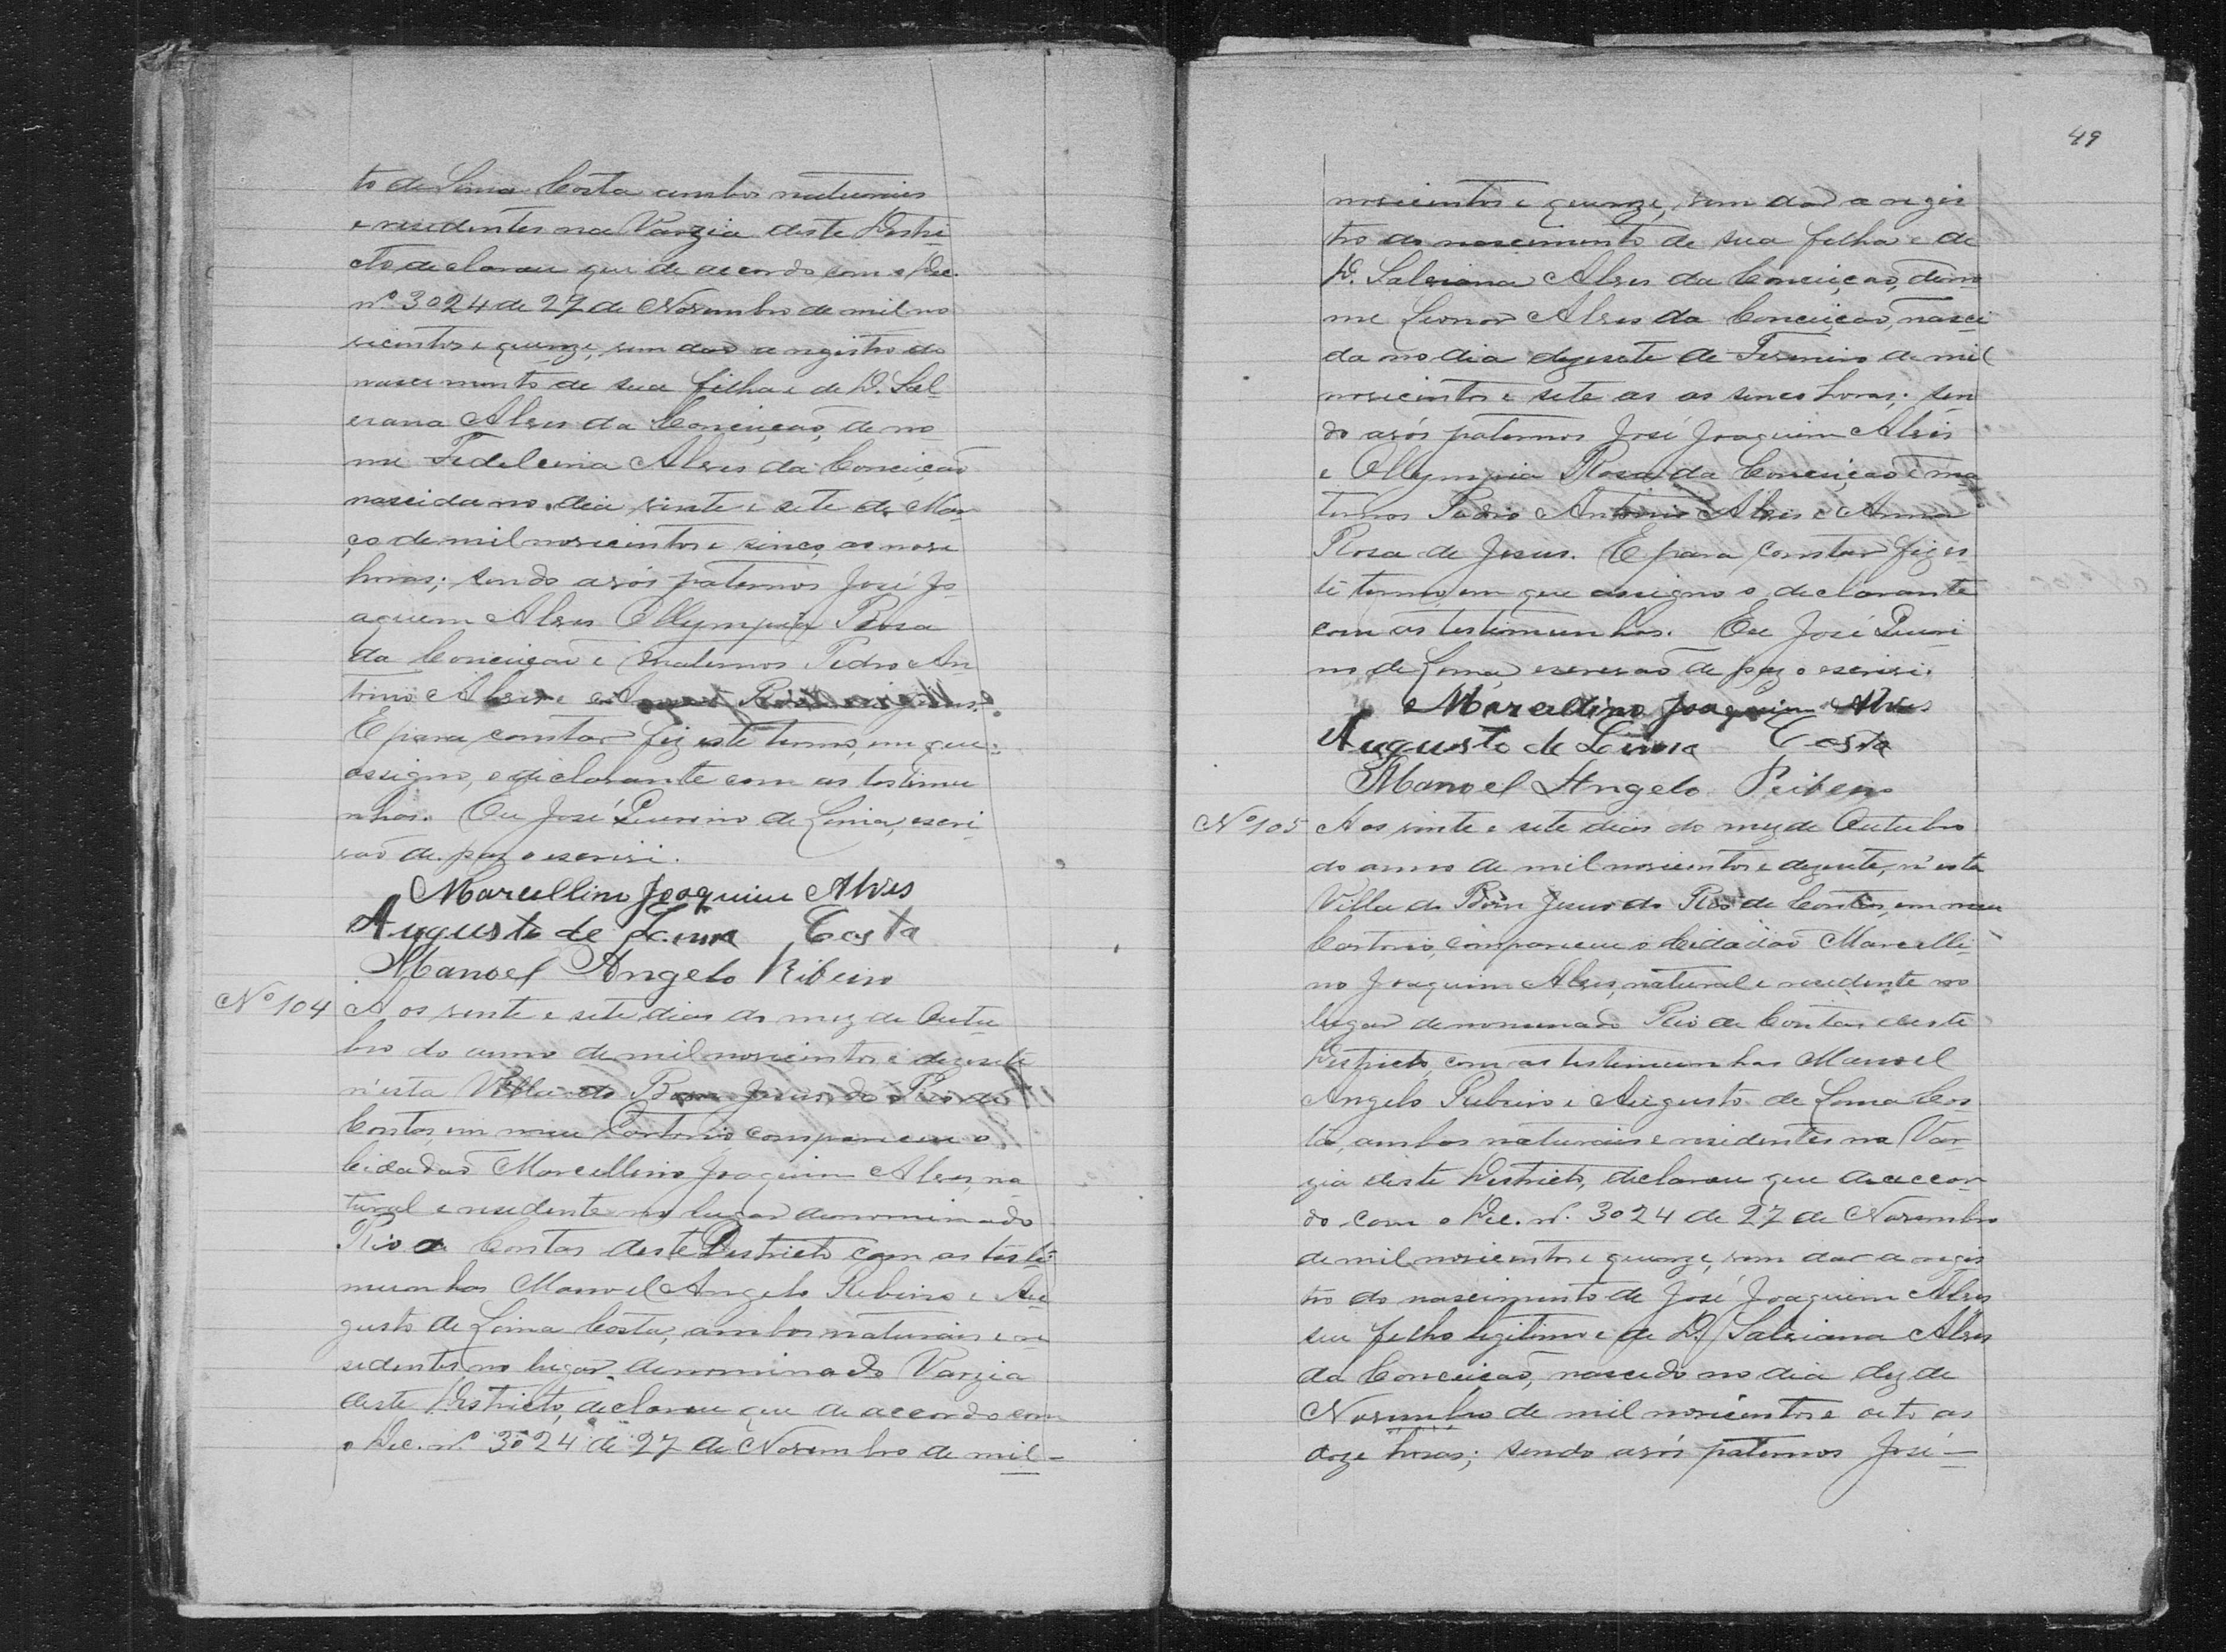 to de Lima Costa ambos naturaes
e residentes na Varzia deste Destri
cto declarou que de accordo com o Dec.
nº 3024 de 27 de Novembro de mil no
vecentos e quinze, vem dar a registro do
nascimento de sua filha e de D. Sal
viana Alves da Conceição, de no
me Fidelcina Alves da Conceição
nascida no dia vinte e sete de Mar
ço de mil novecentos e sinco, as nove
horas; sendo avós paternos José Jo
aquim Alves Ollympia Rosa
da Conceição e maternos Pedro An
tonio Alves e Anna Rosa de Jesus.
E para constar fiz este termo, em que
assigno, o declarante com as testimu
nhas. Eu José Quirino de Lima, escri
vão de paz o escrivi.
Marcellino Joaquim Alves
Augusto de Lima Costa
Manoel Angelo Ribeiro
Nº 104 Aos vinte e sete dias do mez de Outu
bro do anno de mil novecentos e dezesete
n'esta Villa do Bom Jesus do Rio de
Contas, em meu Cartorio, compareceu o
Cidadão Marcellino Joaquim Alves, na
tural e residente no lugar denominado
Rio de Contas deste Destricto com as teste
munhas Manoel Angelo Ribeiro e Au
gusto de Lima Costa, ambos naturaes e re
sidentes no lugar denominado Varzia
deste Destricto, declarou que de accordo com
o Dec. nº 3024 de 27 de Novembro de mil -
49
novecentos e quinze, vem dar a regis
tro do nascimento de sua filha e de
D. Salviana Alves da Conceição, de no
me Leonor Alves da Conceição, nasci
da no dia dezesete de Fevereiro de mil
novecentos e sete as as sinco horas; sen
do avós paternos José Joaquim Alves
e Ollympia Rosa da Conceição e ma
ternos Pedro Antonio Alves e Anna
Rosa de Jesus. E para constar fiz es
te termo, em que assigno o declarante
com as testimunhas. Eu José Quiri
no de Lima, escrevão de paz o escrivi.
Marcellino Joaquim Alves
Augusto de Lima Costa
Manoel Angelo Ribeiro
Nº 105 Aos vinte e sete dias do mez de Outubro
do anno de mil novecentos e dezesete, n'esta
Villa do Bom Jesus do Rio de Contas, em meu
Cartorio, compareceu o Cidadão Marcelli
no Joaquim Alves, natural e residente no
lugar denominado Rio de Contas deste
Destricto, com as testimunhas Manoel
Angelo Ribeiro e Augusto de Lima Cos
ta, ambos naturaes e residentes na Var
zia deste Destricto, declarou que de accor
do com o Dec. nº. 3024 de 27 de Novembro
de mil novecentos e quinze, vem dar a regis
tro do nascimento de José Joaquim Alves
seu filho legitimo e de D. Salviana Alves
da Conceição, nascido no dia dez de
Novembro de mil novecentos e oito as
doze horas; sendo avós paternos José —